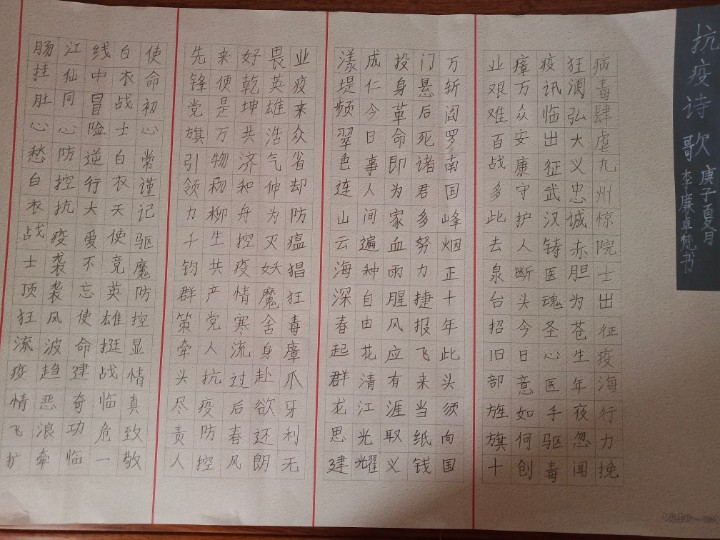 抗疫诗歌
庚子夏月
病毒肆虐九州惊院士出征疫海行力挽
狂澜弘大义忠诚赤胆为苍生年夜忽闻
疫讯临出征武汉铸医魂圣心医手驱毒
瘴万众安康守护人断头今日意如何创
业艰难百战多此去泉台招旧部旌旗十
万斩阎罗南国峰烟正十年此头须向国
门悬后死诸君多努力捷报飞来当纸钱
投身革命即为家血雨腥风应有涯取义
成仁今日事人间遍种自由花清江光耀
漾堤频翠色连山云海深春起群龙思建
业疫来众省却防瘟猖狂毒爪牙利无
畏英雄浩气伸为灭妖魔舍身赴欲还朗
好乾坤共济和舟控疫情寒流过后春风
来便是万物初柳生共产党人抗疫防控
先锋党旗引领力千钧群策牵头尽责人
使命初心常谨记驱魔防控显情真致敬
白衣战士白衣天使竞英雄挺战临危一
线中冒险逆行大爱不忘使命建奇功临
江仙同心防控抗疫袭袭风波趋恶浪牵
肠挂肚心愁白衣战士顶狂流疫情飞扩